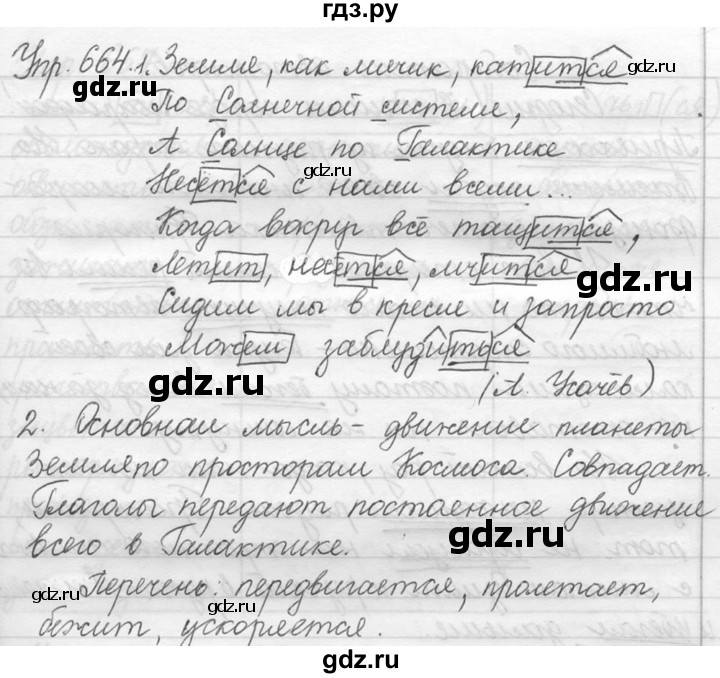 гдз.ру
Упр. 664.1. Земля, как мячик, катится
gdz.ru
По Солнечной системе,
А Солнце по Галактике
gdz.ru
Несётся с нами всеми...
Когда вокруг всё тащится,
Летит, несётся, мчится
gdz.ru
Сидим мы в кресле и запросто
Можем заблудиться
gdz.ru
(А. Усачёв)
2. Основная мысль - движение планеты
Земля по просторам Космоса. Совпадает.
Глаголы передают постоянное движение
gdz.ru
всего в Галактике.
gdz.ru
Перечень: передвигается, пролетает,
gdz.ru
бежит, ускоряется.
gdz.ru